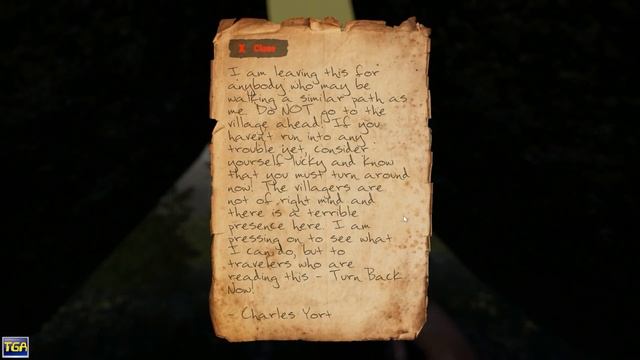 X Close
I am leaving this for
anybody who may be
walking a similar path as
me. Do NOT go to the
village ahead! If you
haven't run into any
trouble yet, consider
yourself lucky and know
that you must turn around
now! The villagers are
not of right mind and
there is a terrible
presence here. I am
pressing on to see what
I can do, but to
travelers who are
reading this - Turn Back
Now!
- Charles Yort
TGA